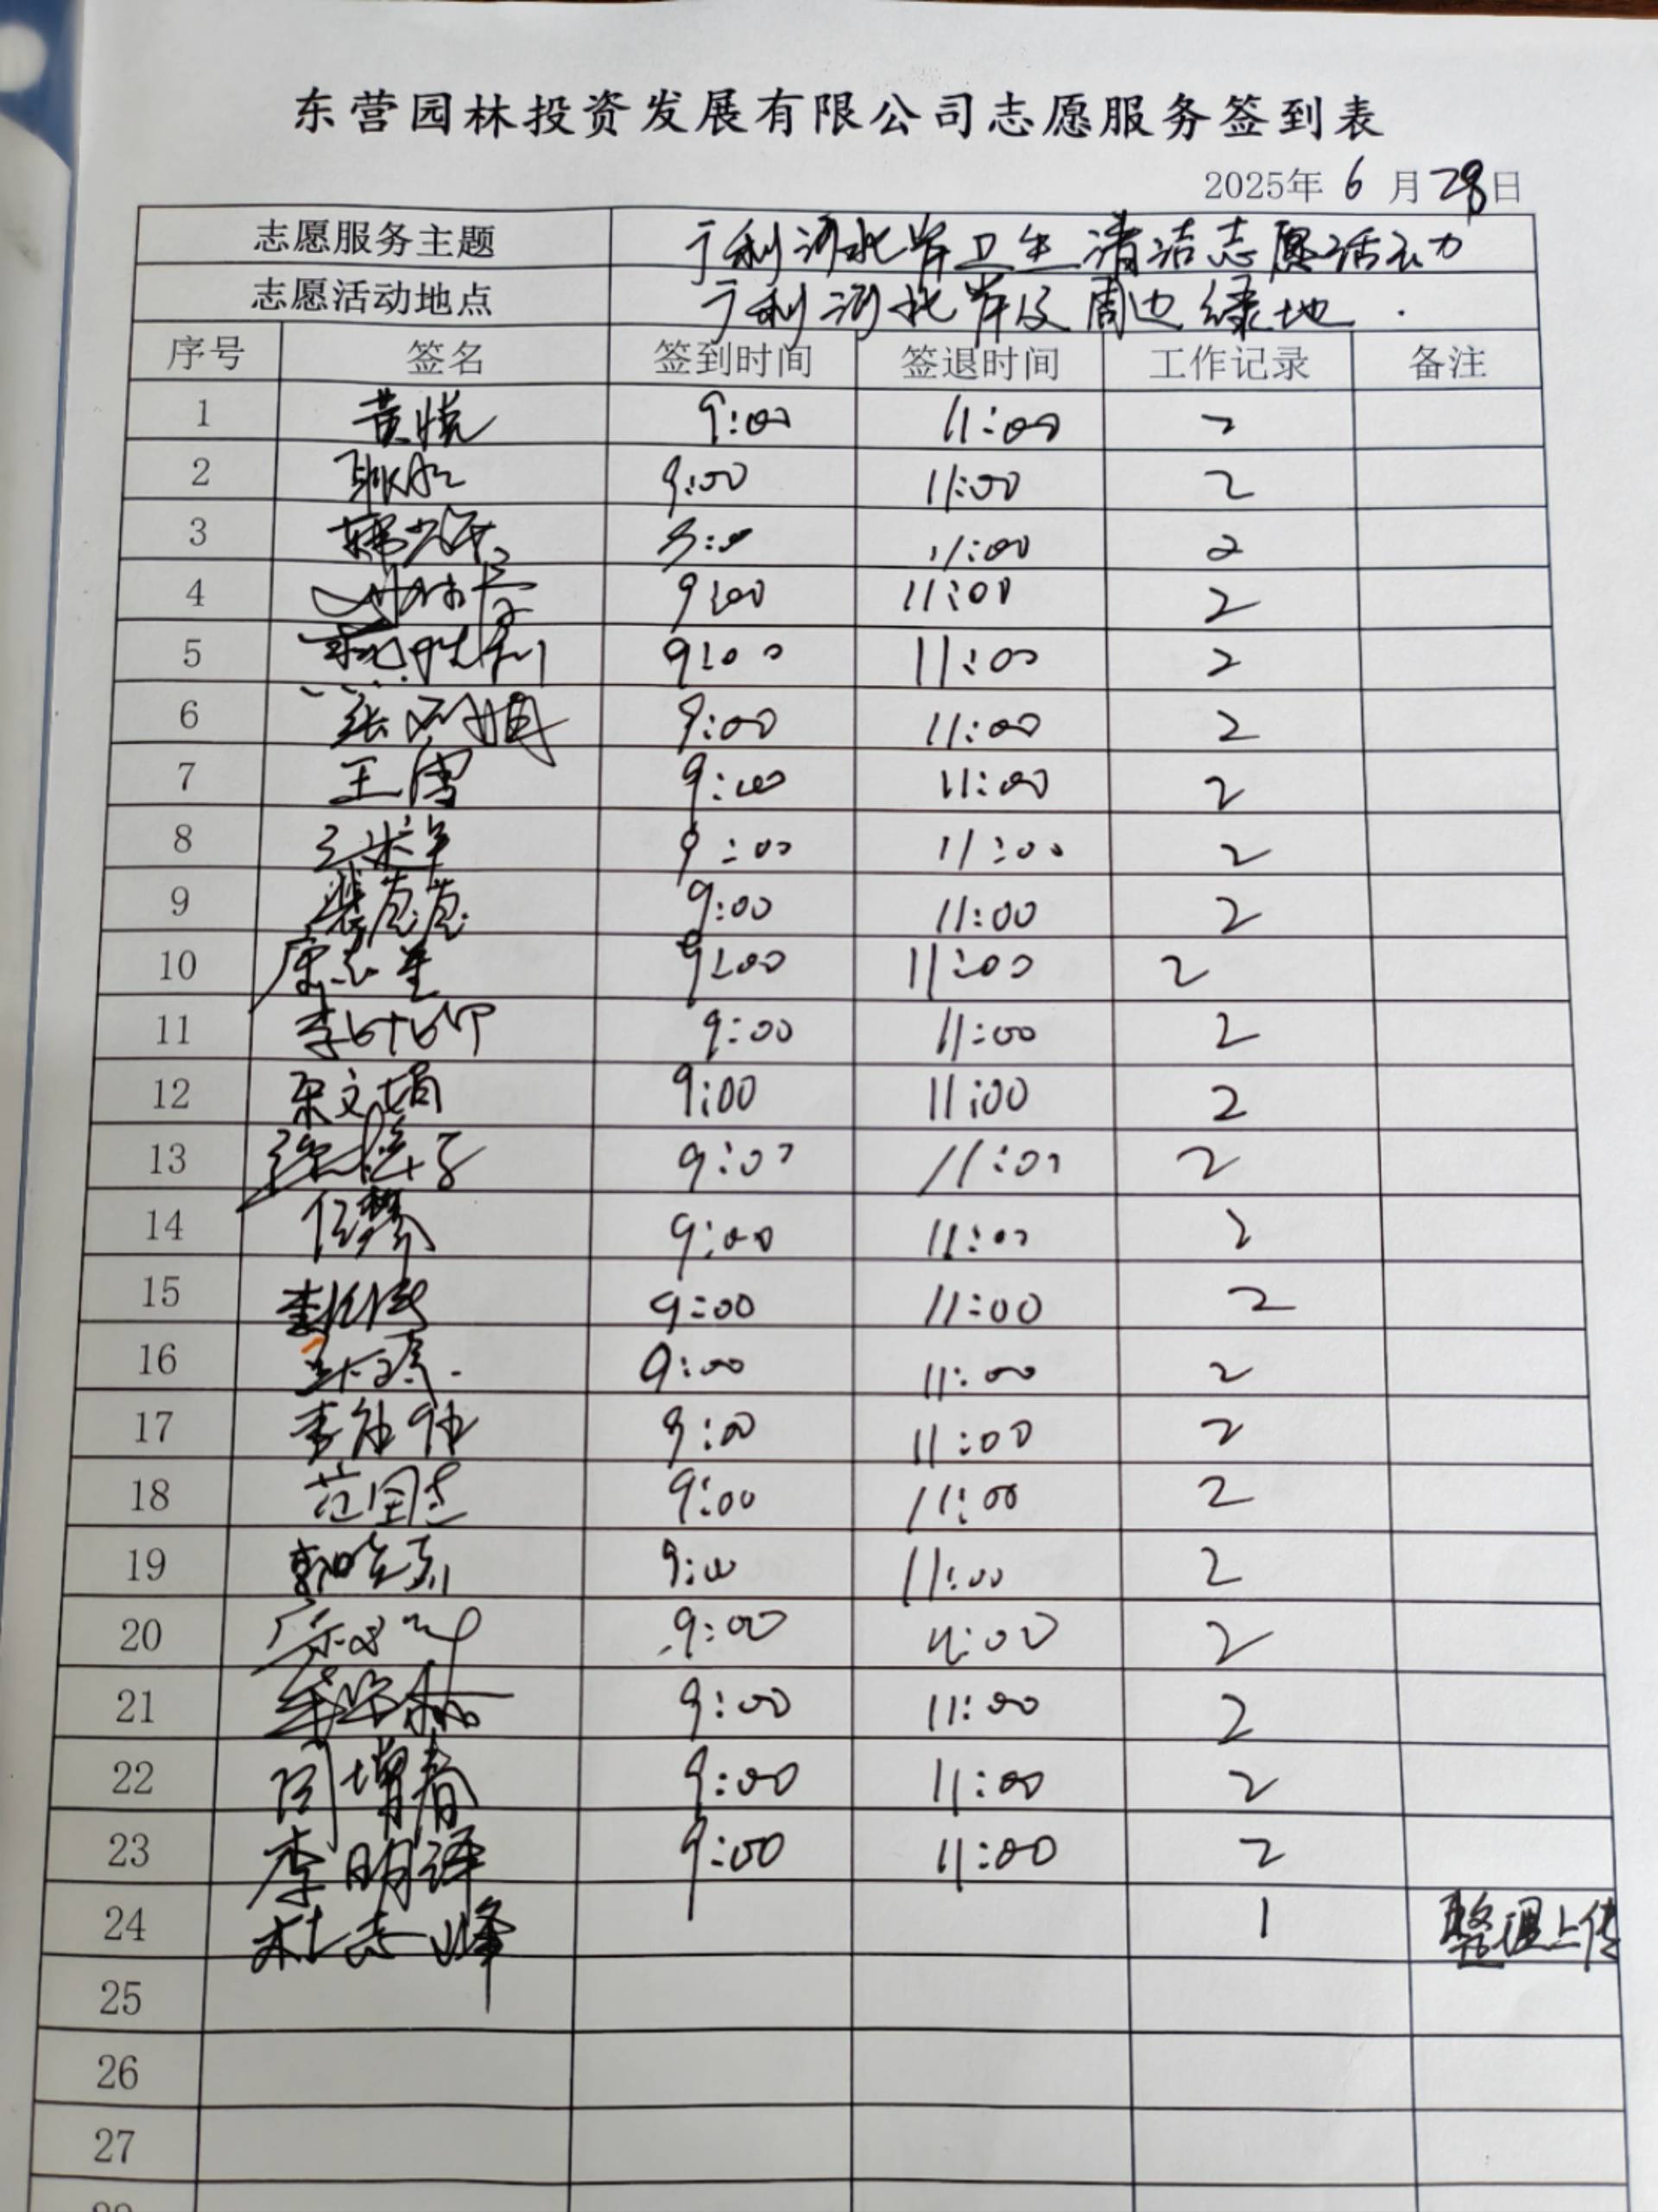 东营园林投资发展有限公司志愿服务签到表
2025年 6 月 28日
志愿服务主题 广利河北岸卫生清洁志愿活动
志愿活动地点 广利河北岸及周边绿地
序号 签名 签到时间 签退时间 工作记录 备注
1 黄悦 9:00 11:00 2
2 9:00 11:00 2
3 11:00 2
4 9:00 11:00 2
5 9:00 11:00 2
6 张 9:00 11:00 2
7 王雪 9:00 11:00 2
8 9:00 11:00 2
9 裴苣苣 9:00 11:00 2
10 9:00 11:00 2
11 李 9:00 11:00 2
12 宋文娟 9:00 11:00 2
13 9:00 11:00 2
14 任梦 9:00 11:00 2
15 李 9:00 11:00 2
16 9:00 11:00 2
17 李 9:00 11:00 2
18 范国杰 9:00 11:00 2
19 郭 9:00 11:00 2
20 9:00 11:00 2
21 9:00 11:00 2
22 闫增春 9:00 11:00 2
23 李明译 9:00 11:00 2
24 杜志峰 1 整理上传
25
26
27